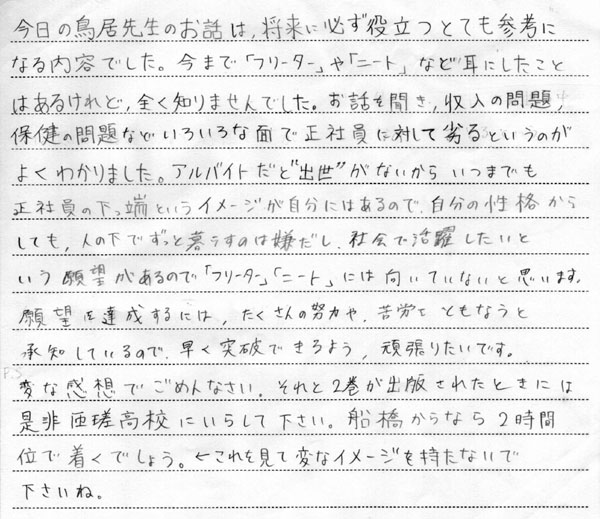 今日の鳥居先生のお話は、将来に必ず役立つとても参考に
なる内容でした。今まで「フリーター」や「ニート」など耳にしたこと
はあるけれど、全く知りませんでした。お話を聞き、収入の問題、
保健の問題などいろいろな面で正社員に対して劣るというのが
よくわかりました。アルバイトだと"出世"がないからいつまでも
正社員の下っ端というイメージが自分にはあるので、自分の性格から
しても、人の下でずっと暮らすのは嫌だし、社会で活躍したいと
いう願望があるので「フリーター」「ニート」には向いていないと思います。
願望を達成するには、たくさんの努力や、苦労をともなうと
承知しているので、早く突破できるよう、頑張りたいです。
P.S
変な感想でごめんなさい。それと2巻が出版されたときには
是非匝瑳高校にいらして下さい。船橋からなら2時間
位で着くでしょう。←これを見て変なイメージを持たないで
下さいね。